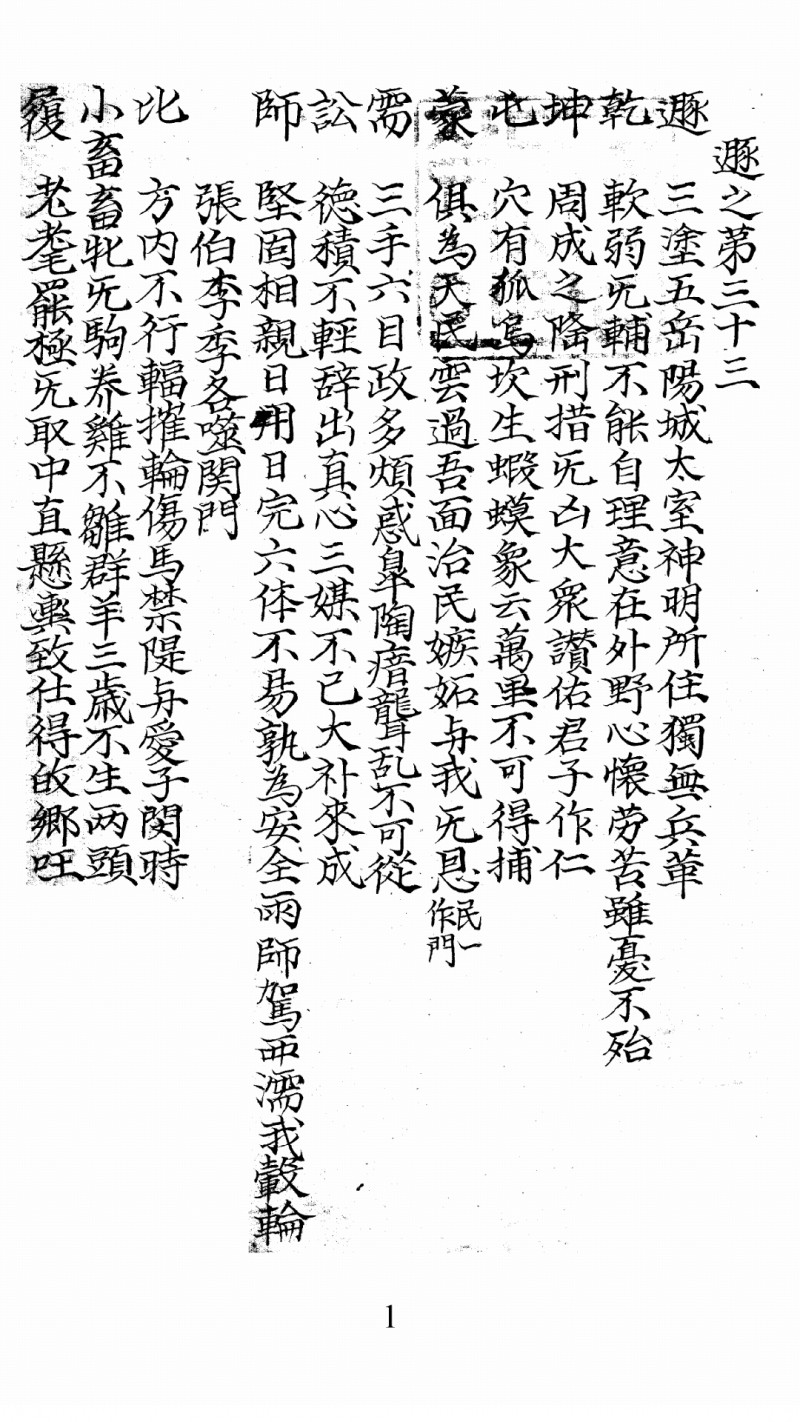 遯之苐三十三
遯 三塗五岳陽城太室神明所住獨無兵革
乾 軟弱旡輔不能自理意在外野心懷劳苦雖憂不殆
坤 周成之降刑措旡凶大衆讃佑君子作仁
屯 穴有狐烏坎生蝦蟆象云萬里不可得捕
蒙 俱為天民雲過吾面治民嫉妬与我旡恩民一作門
需 三手六目政多煩惑臯陶瘖聾乱不可從
訟 德積不輕辞出真心三媒不已大补來成
師 堅固相親日用日完六体不易孰為安全雨師駕西濡我轂輪
張伯李季各噬関門
比 方內不行輻摧輪傷馬禁隄与愛子閔時
小畜 畜牝旡駒养雞不雛群羊三歳不生两頭
履 老耄罷極旡取中直懸輿致仕得𢼊鄉吐
1